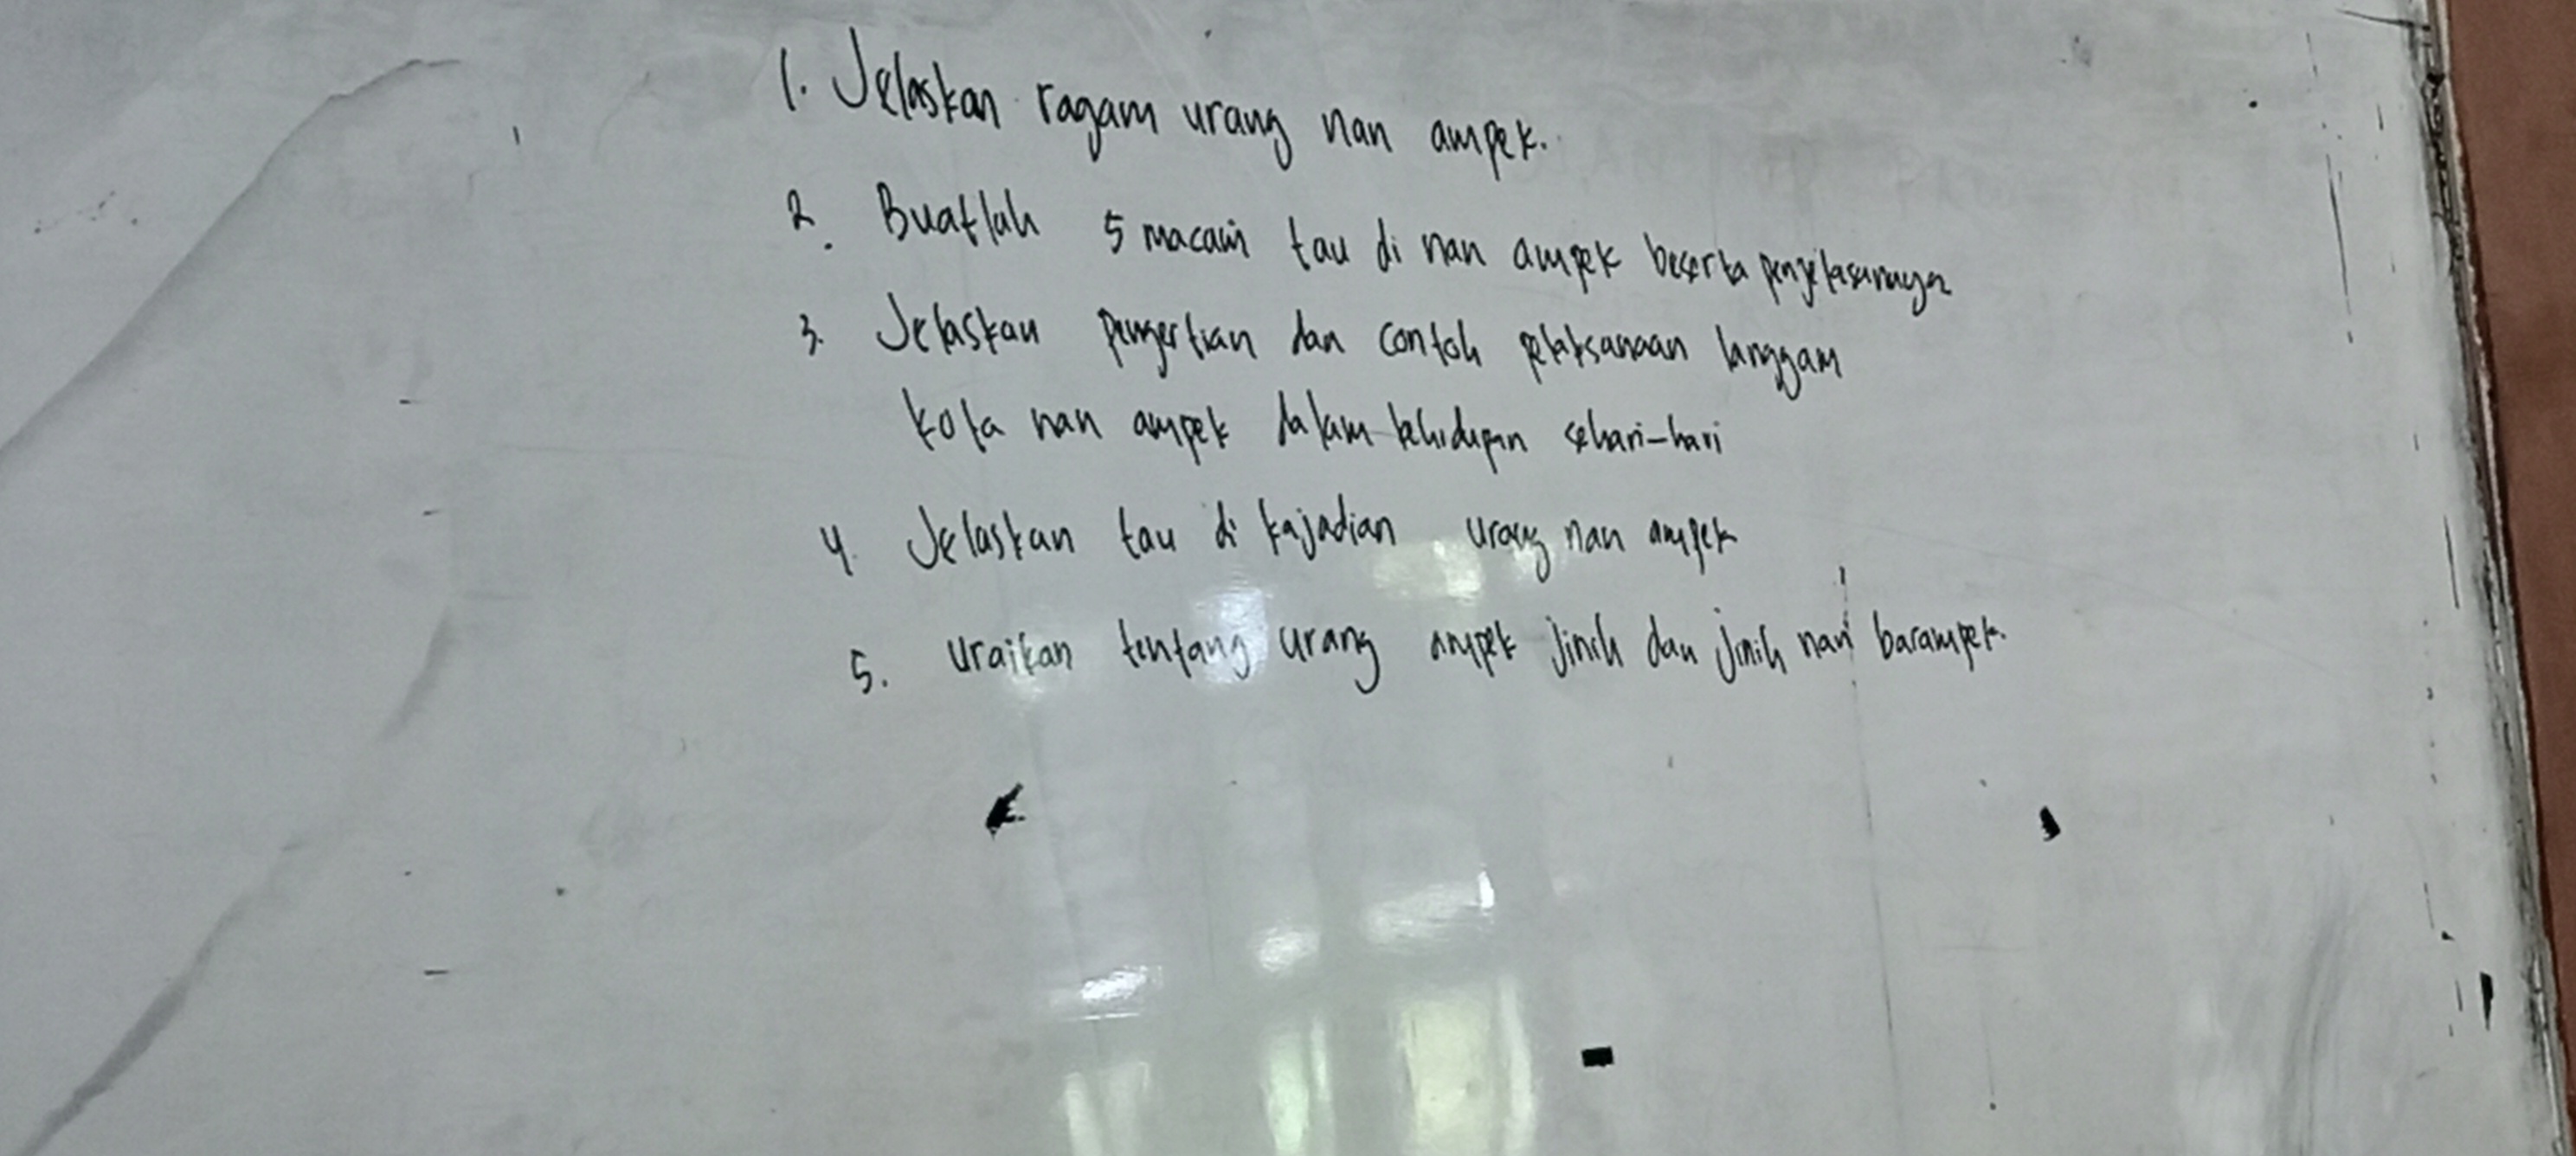 1. Jelaskan ragam urang nan ampek.
2. Buatlah 5 macam tau di nan ampek beserta penjelasannya
3. Jelaskan pengertian dan contoh pelaksanaan langgam
kola nan ampek dalam kehidupan sehari-hari
4. Jelaskan tau di kajadian urang nan ampek
5. uraikan tentang urang ampek Jinih dan jinih nan barampek.